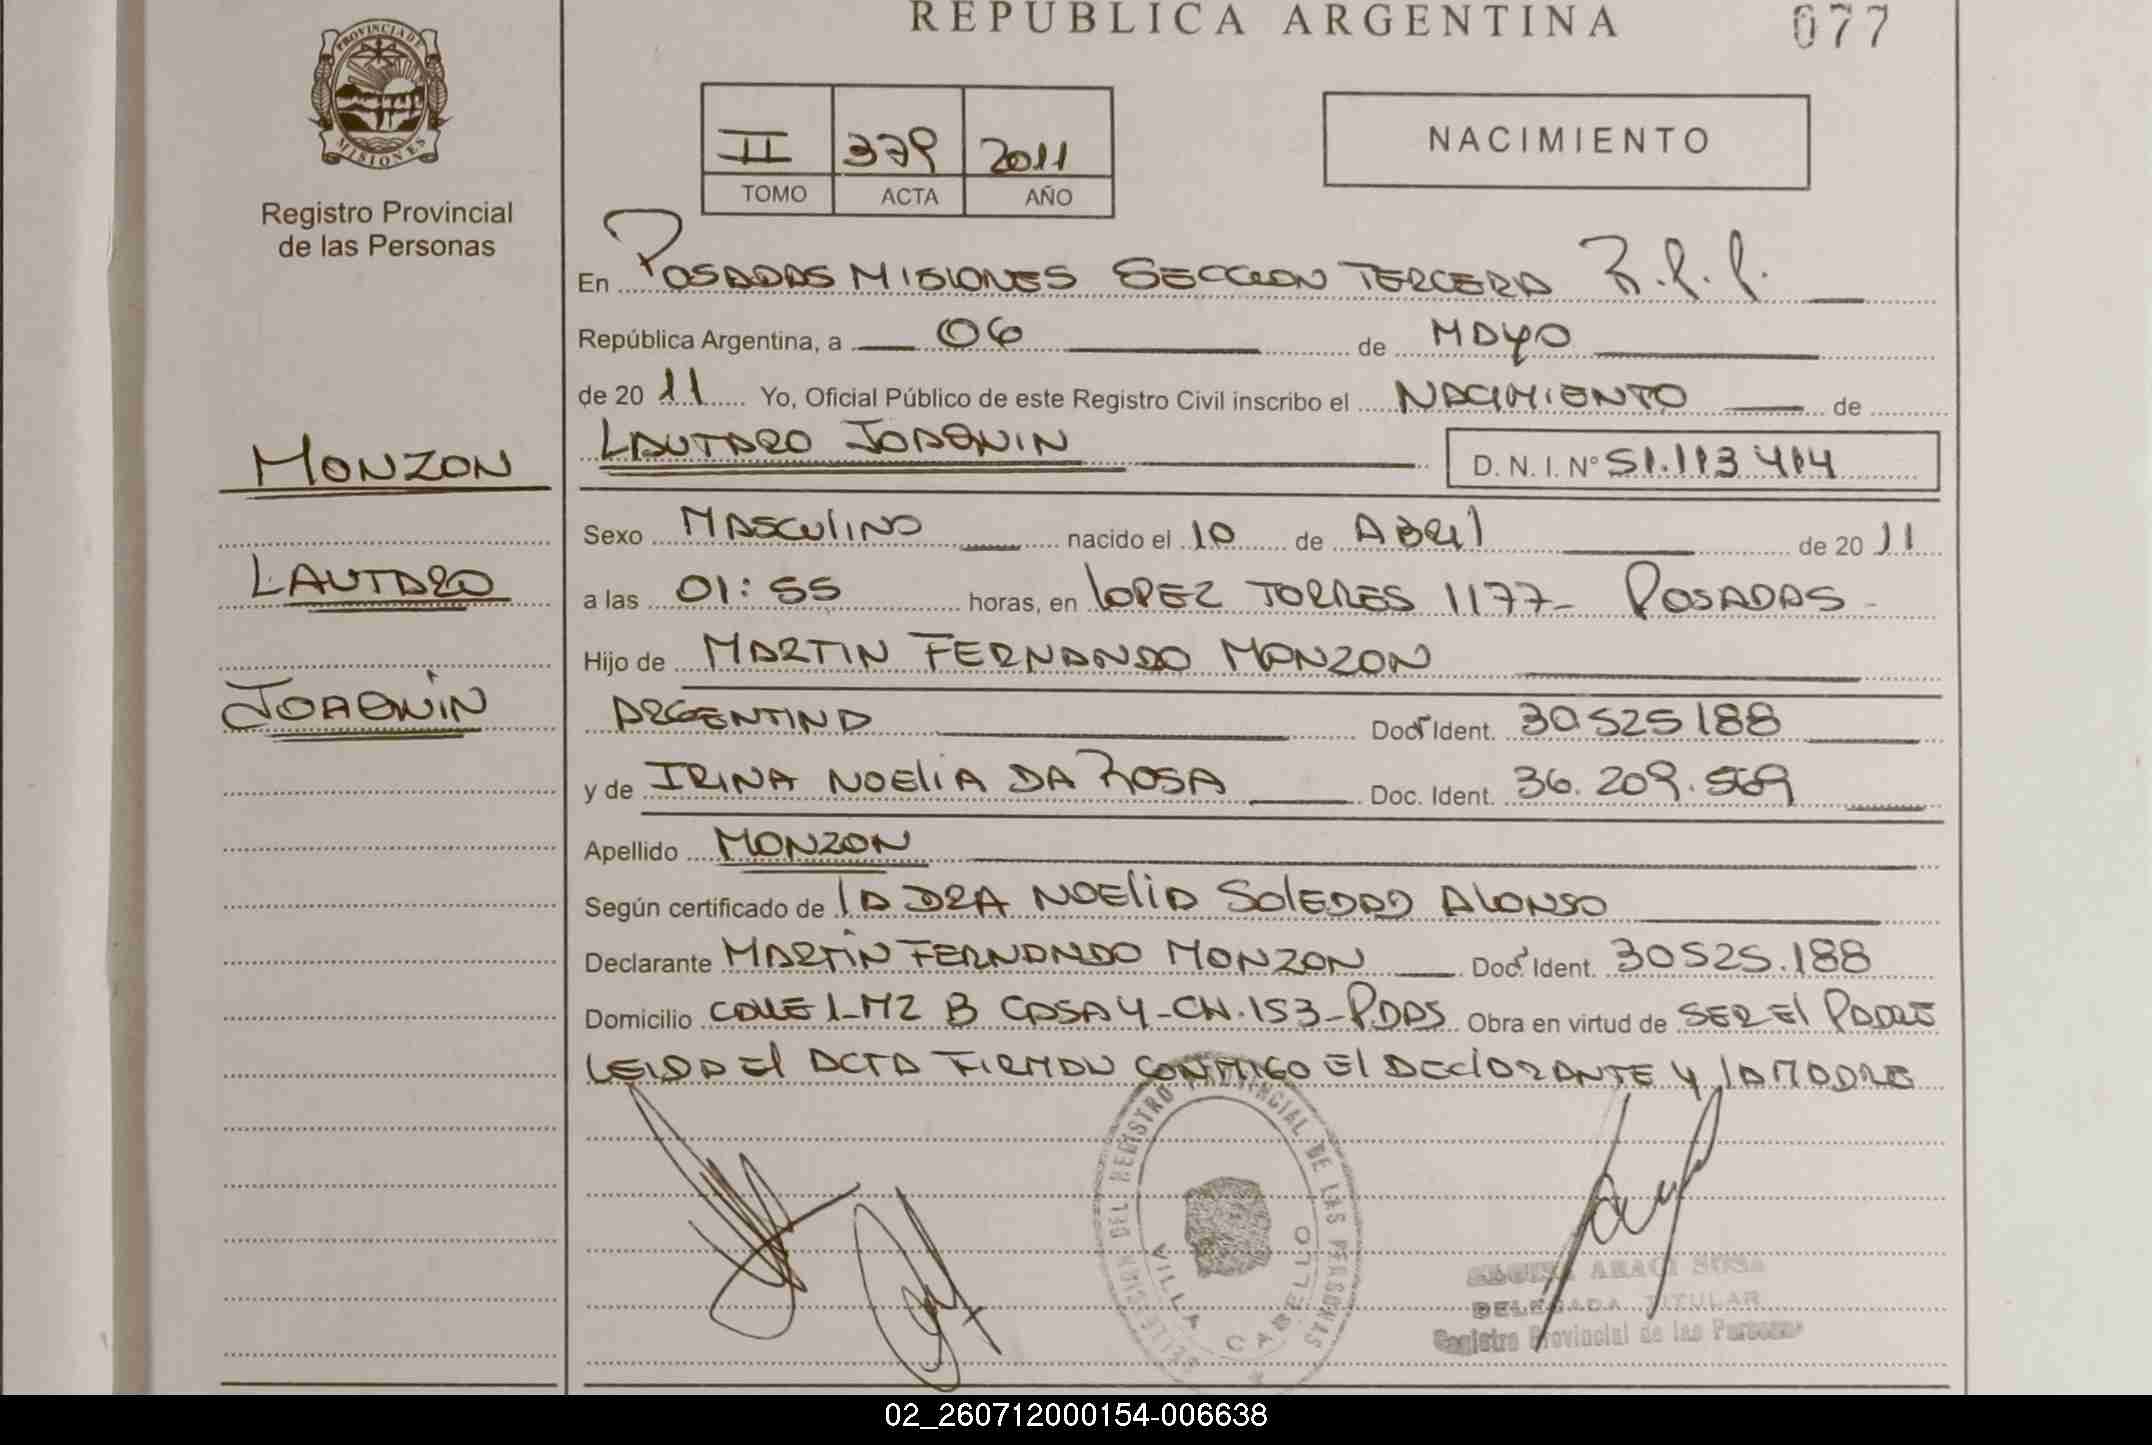 REPUBLICA ARGENTINA
077
PROVINCIA DE MISIONES
Registro Provincial
de las Personas
II 379 2011
TOMO ACTA AÑO
NACIMIENTO
En POSADAS MISIONES SECCION TERCERA R.P.P.
República Argentina, a 06 de MAYO
de 2011 Yo, Oficial Público de este Registro Civil inscribo el NACIMIENTO de
LAUTARO JOAQUIN D. N. I. N° 51.113.414
MONZON
LAUTARO
JOAQUIN
Sexo MASCULINO nacido el 10 de ABRIL de 2011
a las 01:55 horas, en LOPEZ TORRES 1177- POSADAS-
Hijo de MARTIN FERNANDO MONZON
ARGENTINA Doc. Ident. 30525188
y de IRINA NOELIA DA ROSA Doc. Ident. 36.209.569
Apellido MONZON
Según certificado de LA DRA NOELIA SOLEDAD ALONSO
Declarante MARTIN FERNANDO MONZON Doc. Ident. 30525.188
Domicilio CALLE 1-MZ B CASA 4-CH.153-PDAS Obra en virtud de SER EL PADRE
LEIDA EL ACTA FIRMAN CONMIGO EL DECLARANTE Y LA MADRE
DEL REGISTRO PROVINCIAL DE LAS PERSONAS
VILLA CABELLO
ARACI SOSA
DELEGADA TITULAR
Registro Provincial de las Personas
02_260712000154-006638